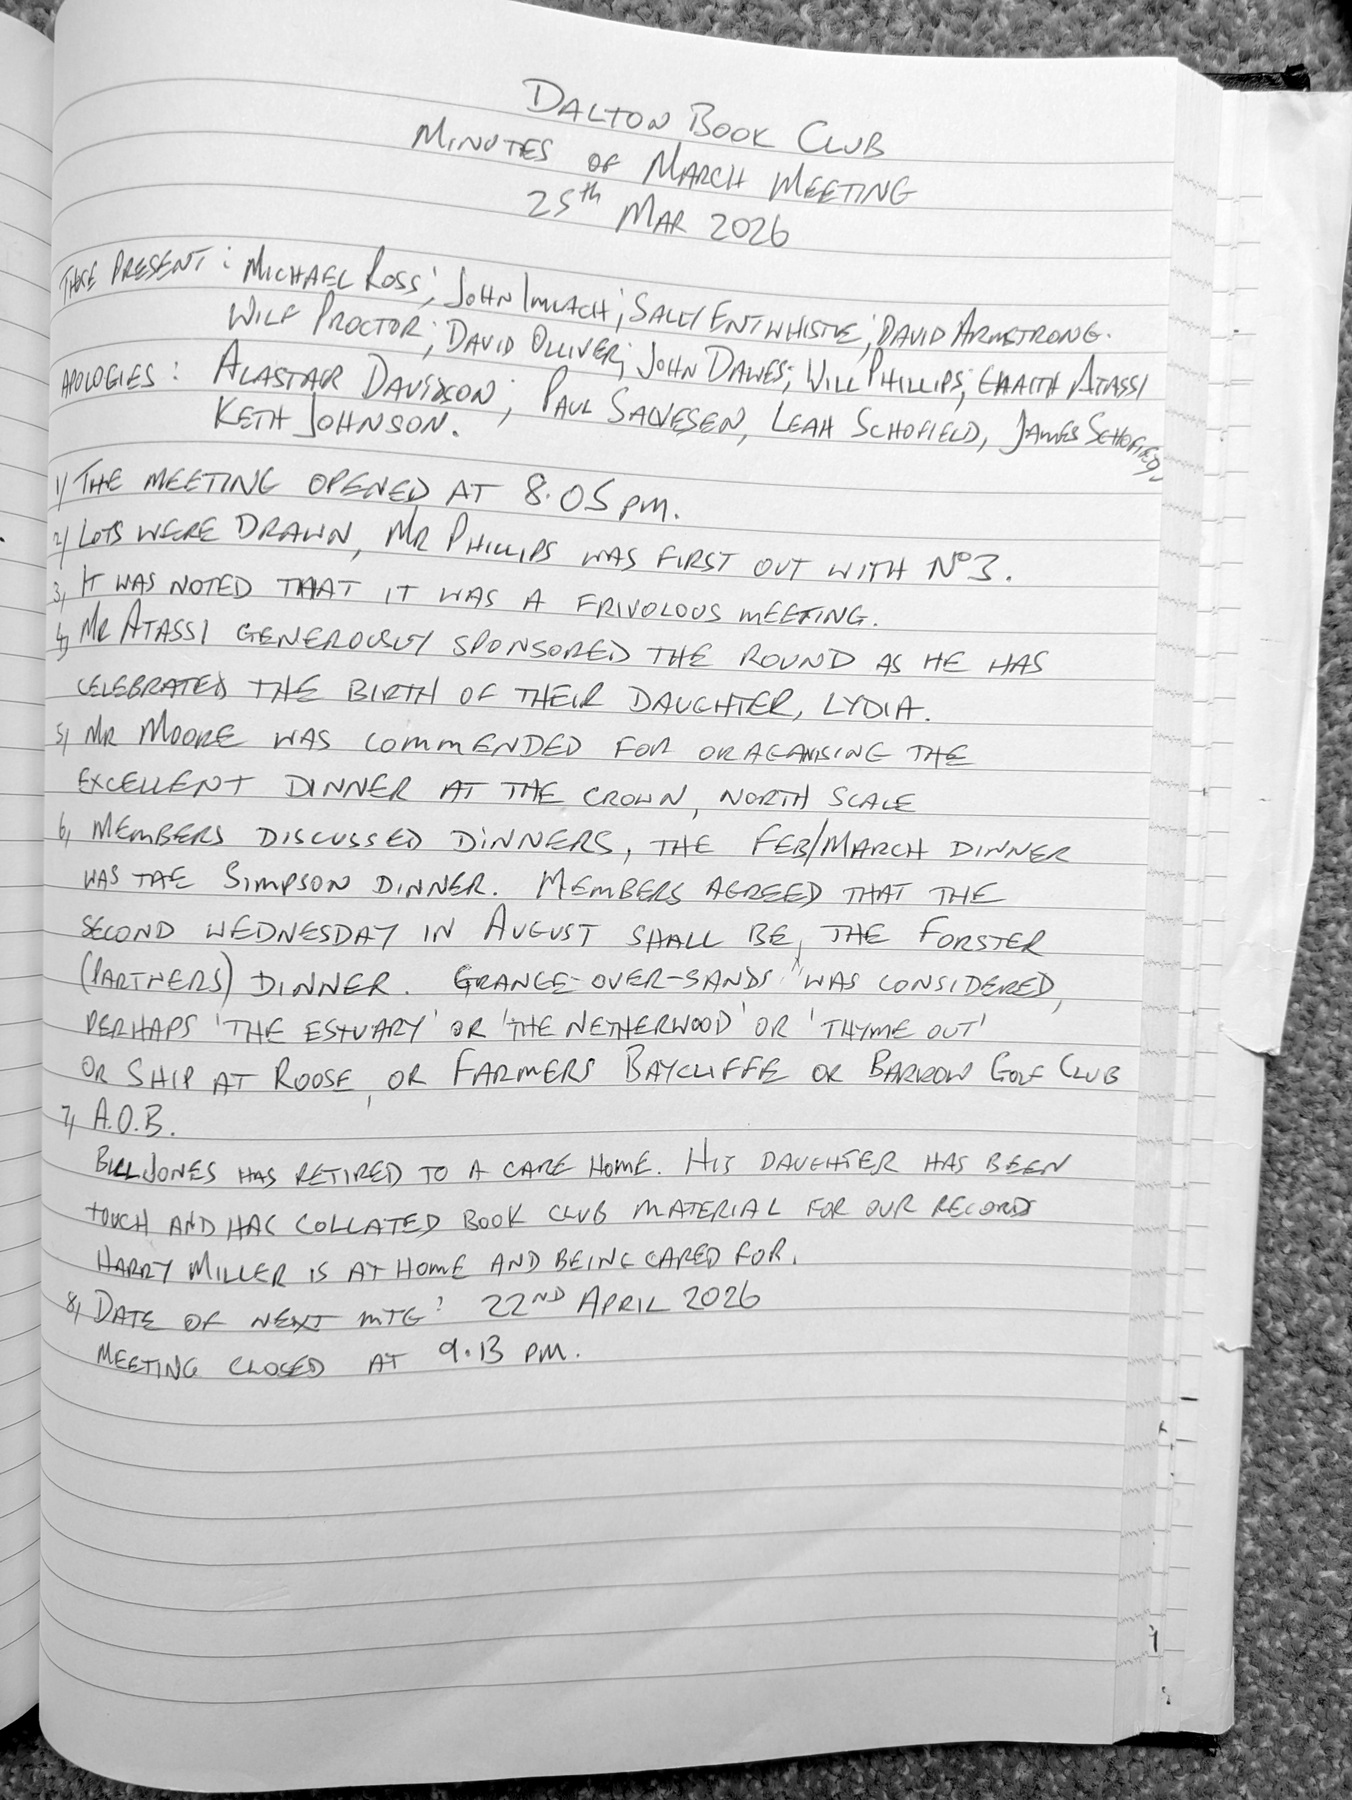 DALTON BOOK CLUB
MINUTES OF MARCH MEETING
25th MAR 2026
THOSE PRESENT: MICHAEL ROSS; JOHN IMLACH; SALLY ENTWHISTLE; DAVID ARMSTRONG.
WILF PROCTOR; DAVID OLLIVER; JOHN DAWES; WILL PHILLIPS; GHAITH ATASSI
APOLOGIES: ALASTAIR DAVIDSON; PAUL SALVESEN, LEAH SCHOFIELD, JAMES SCHOFIELD,
KEITH JOHNSON.
1) THE MEETING OPENED AT 8.05 PM.
2) LOTS WERE DRAWN, MR PHILLIPS WAS FIRST OUT WITH No 3.
3) IT WAS NOTED THAT IT WAS A FRIVOLOUS MEETING.
4) MR ATASSI GENEROUSLY SPONSORED THE ROUND AS HE HAS
CELEBRATED THE BIRTH OF THEIR DAUGHTER, LYDIA.
5) MR MOORE WAS COMMENDED FOR ORAGANISING THE
EXCELLENT DINNER AT THE CROWN, NORTH SCALE
6) MEMBERS DISCUSSED DINNERS, THE FEB/MARCH DINNER
WAS THE SIMPSON DINNER. MEMBERS AGREED THAT THE
SECOND WEDNESDAY IN AUGUST SHALL BE THE FORSTER
(PARTNERS) DINNER. GRANGE-OVER-SANDS WAS CONSIDERED,
PERHAPS 'THE ESTUARY' OR 'THE NETHERWOOD' OR 'THYME OUT'
OR SHIP AT ROOSE, OR FARMERS BAYCLIFFE OR BARROW GOLF CLUB
7) A.O.B.
BILL JONES HAS RETIRED TO A CARE HOME. HIS DAUGHTER HAS BEEN
TOUCH AND HAS COLLATED BOOK CLUB MATERIAL FOR OUR RECORDS
HARRY MILLER IS AT HOME AND BEING CARED FOR.
8) DATE OF NEXT MTG: 22ND APRIL 2026
MEETING CLOSED AT 9.13 PM.